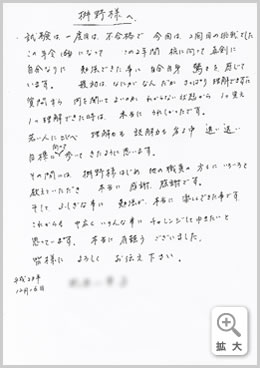 桝野様へ
試験は一度目は、不合格で 今回は 2回目の挑戦でした
この年令 になって この2年間 机に向って 真剣に
自分なりに 勉強できた事に 自分自身 驚きを感じて
います。 最初は なにがなんだか さっぱり理解できずに
質問すら 何を聞いてよいのか、わからない状態から 1つ覚え
1つ理解できた時は、本当に うれしかったです。
若い人に比べ 理解力も 読解力も 劣る中 遠い遠い
目標に向かって歩ってきたように思います。
その間には 桝野様はじめ 他の職員の方々に いろいろと
教えていただき 本当に 感謝、感謝です。
そして ふしぎな事に 勉強が、本当に 楽しくできた事です
これからも 中広く いろんな事に チャレンジして ゆきたいと
思っています。 本当に 有難う ございました。
皆様に よろしく お伝え下さい。
平成28年
12月16日
拡大